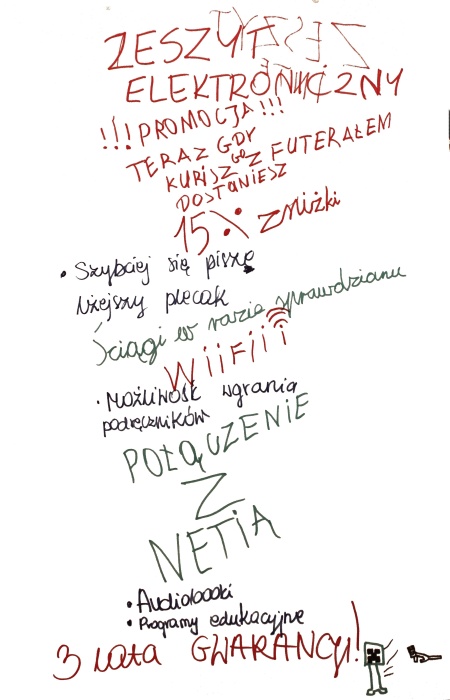 ZESZYT
ELEKTRONICZNY
!!!PROMOCJA!!!
TERAZ GDY
KUPISZ GO Z FUTERAŁEM
DOSTANIESZ
15% zniżki
• Szybciej się pisze
lżejszy plecak
Ściągi w razie sprawdzianu
WiiFiii
• Możliwość wgrania
podręczników
POŁĄCZENIE
Z
NETIA
• Audiobooki
• Programy edukacyjne
3 lata GWARANCJI!